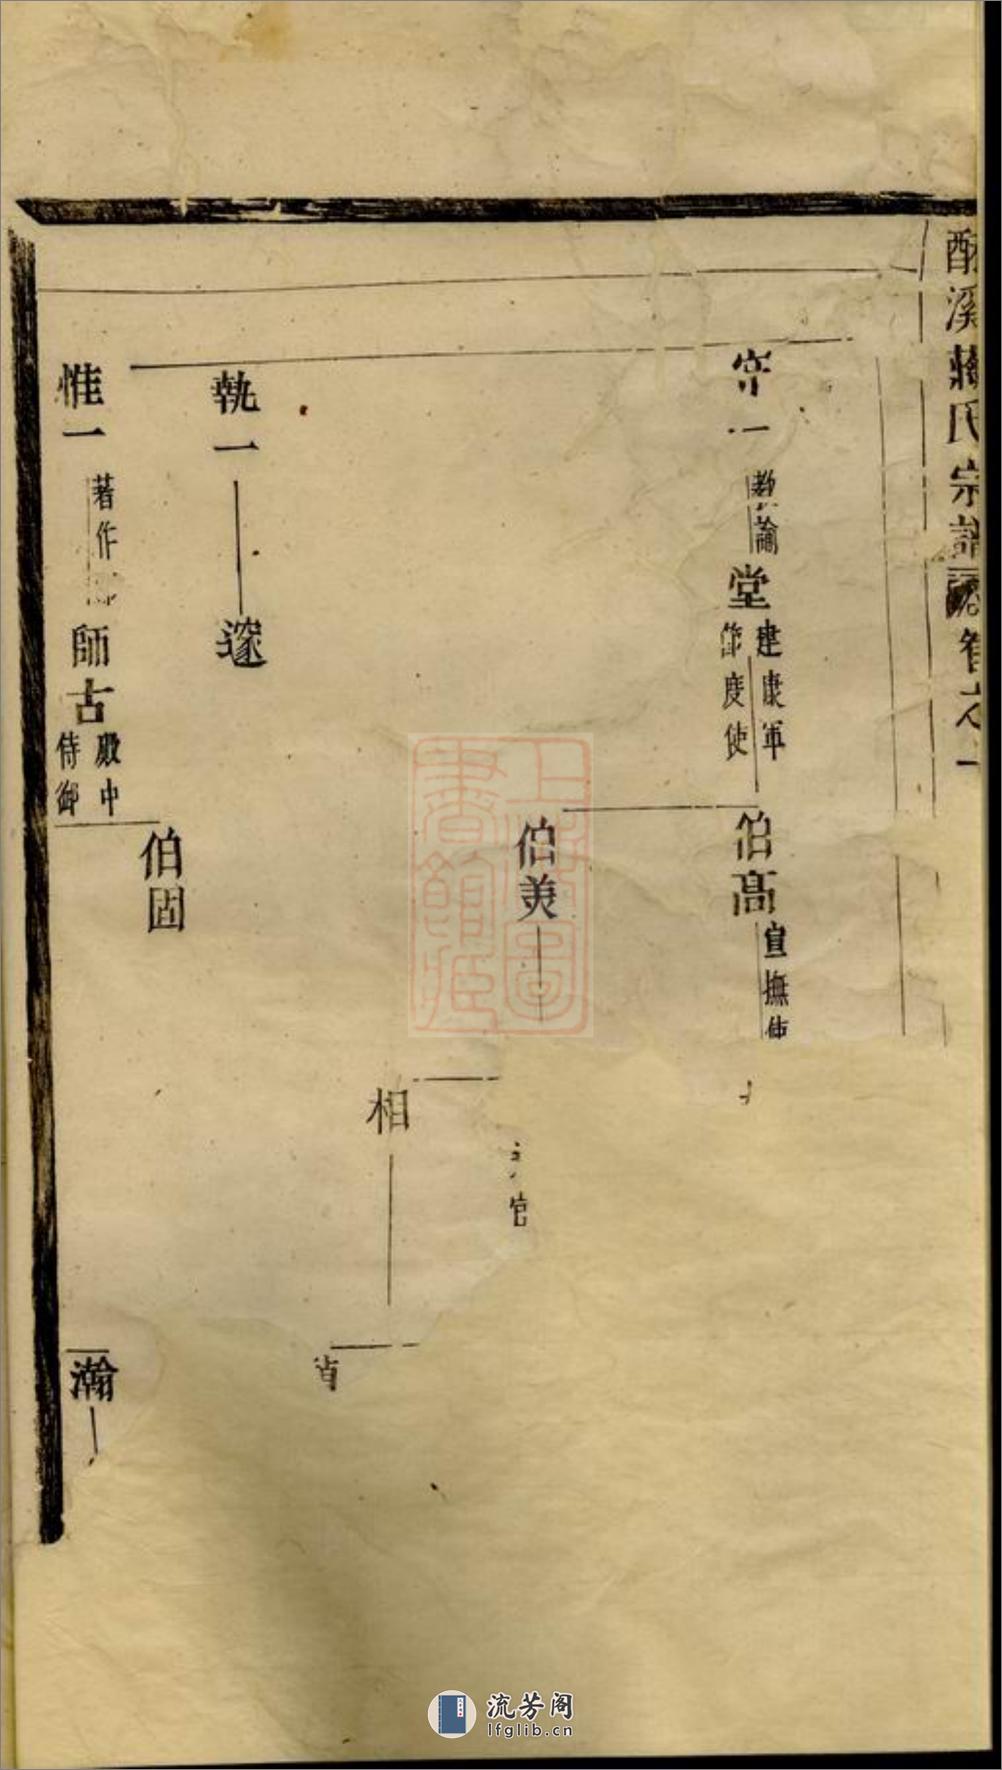 溪蔣氏宗譜
卷之一
守一 教諭
堂 建康軍節度使
伯高 宣撫使
伯美
官
相
執一
邃
惟一 著作郎
師古 殿中侍御
伯固
瀚
上海圖書館藏
流芳阁
lfglib.cn